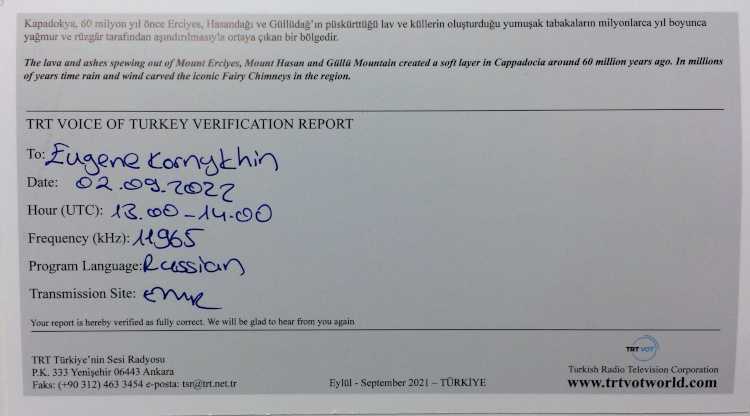 Kapadokya, 60 milyon yıl önce Erciyes, Hasandağı ve Güllüdağ'ın püskürttüğü lav ve küllerin oluşturduğu yumuşak tabakaların milyonlarca yıl boyunca
yağmur ve rüzgâr tarafından aşındırılmasıyla ortaya çıkan bir bölgedir.
The lava and ashes spewing out of Mount Erciyes, Mount Hasan and Güllü Mountain created a soft layer in Cappadocia around 60 million years ago. In millions
of years time rain and wind carved the iconic Fairy Chimneys in the region.
TRT VOICE OF TURKEY VERIFICATION REPORT
To: Eugene Kornykhin
Date: 02.09.2022
Hour (UTC): 13.00-14.00
Frequency (kHz): 11965
Program Language: Russian
Transmission Site: EMR
Your report is hereby verified as fully correct. We will be glad to hear from you again
TRT Türkiye'nin Sesi Radyosu
P.K. 333 Yenişehir 06443 Ankara
Faks: (+90 312) 463 3454 e-posta: tsr@trt.net.tr
Eylül - September 2021 – TÜRKİYE
TRT VOT
Turkish Radio Television Corporation
www.trtvotworld.com